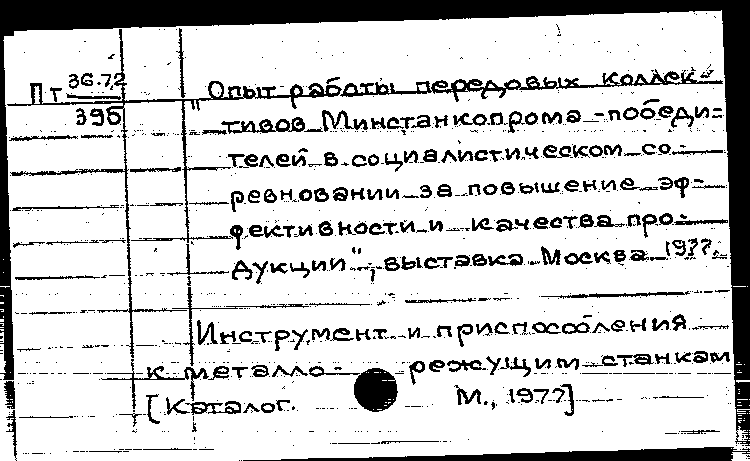 Пт 36.7,2
395
"Опыт работы передовых коллек-
тивов Минстанкопрома - победи-
телей в социалистическом со-
ревновании за повышение эф-
фективности и качества про-
дукции", выставка. Москва. 1977.
Инструмент и приспособления
к металло- режущим станкам
[Каталог. М., 1977]